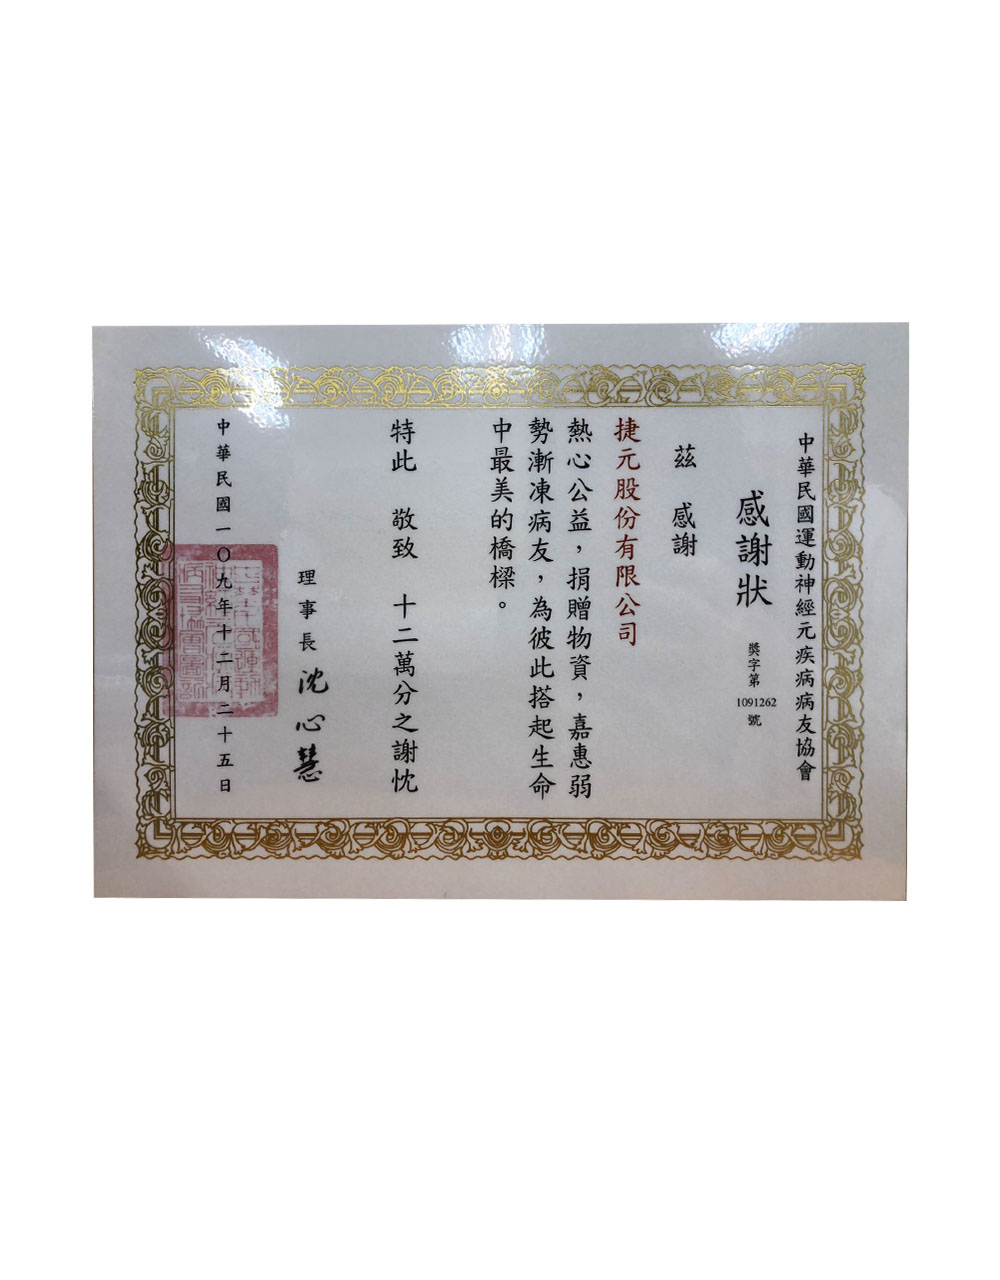 中華民國運動神經元疾病病友協會
感謝狀
獎字第1091262號
茲 感謝
捷元股份有限公司
熱心公益，捐贈物資，嘉惠弱
勢漸凍病友，為彼此搭起生命
中最美的橋樑。
特此 敬致 十二萬分之謝忱
理事長 沈心慧
中華民國一〇九年十二月二十五日